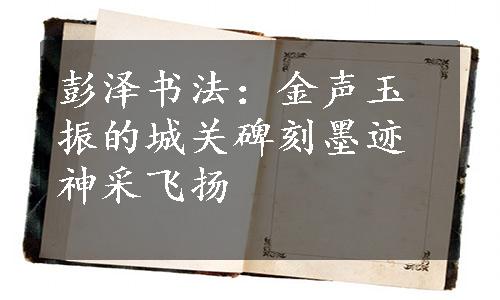 彭泽书法：金声玉
振的城关碑刻墨迹
神采飞扬